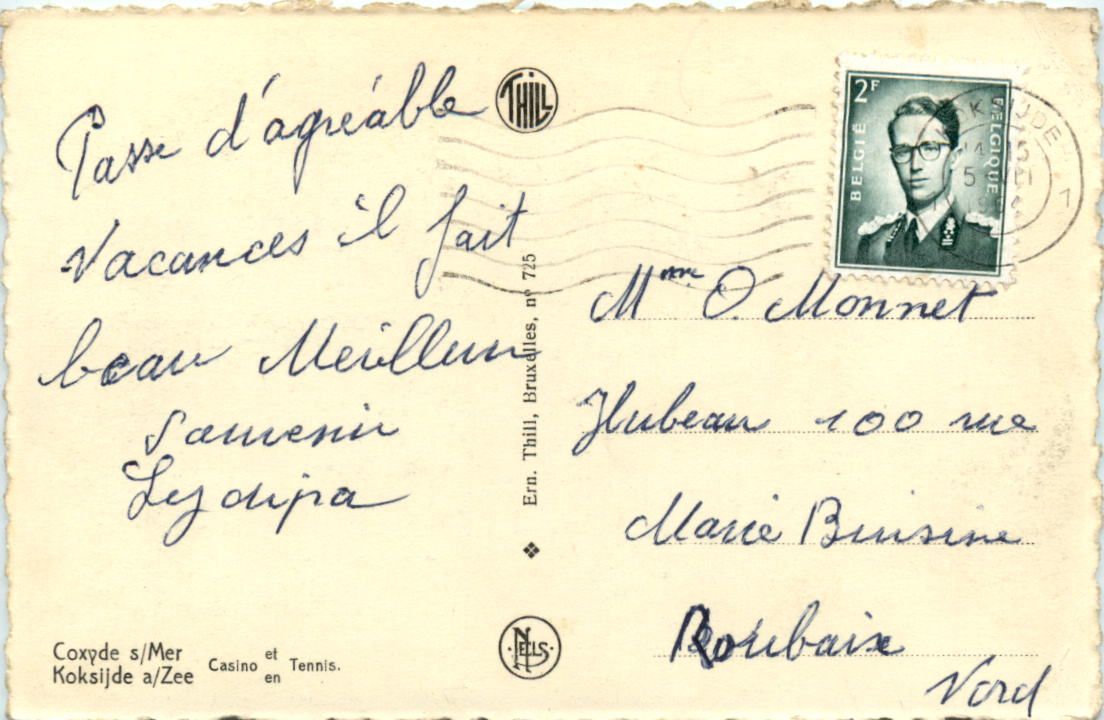 Passe d'agréable
vacances il fait
beau Meilleur
Souvenir
THILL
Ern. Thill, Bruxelles, nº 725
NELS
Coxyde s/Mer
Koksijde a/Zee
Casino et en Tennis.
2F
BELGIË
BELGIQUE
Mme O. Monnet
Hubeau 100 rue
Marie Buisine
Roubaix
Nord